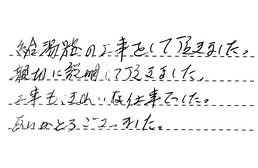 給湯器の工事をして頂きました。
親切に説明して頂きました。
工事もきれいな仕事でした。
ありがとうございました。